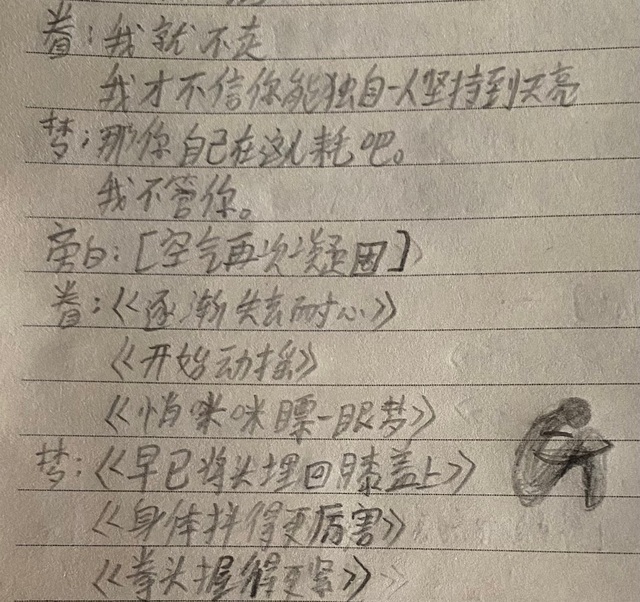 眷:我就不走
我才不信你能独自一人坚持到天亮
梦:那你自己在这儿耗吧。
我不管你。
旁白:[空气再次凝固]
眷:《逐渐失去耐心》
《开始动摇》
《悄咪咪瞟一眼梦》
梦:《早已将头埋回膝盖上》
《身体抖得更厉害》
《拳头握得更紧》